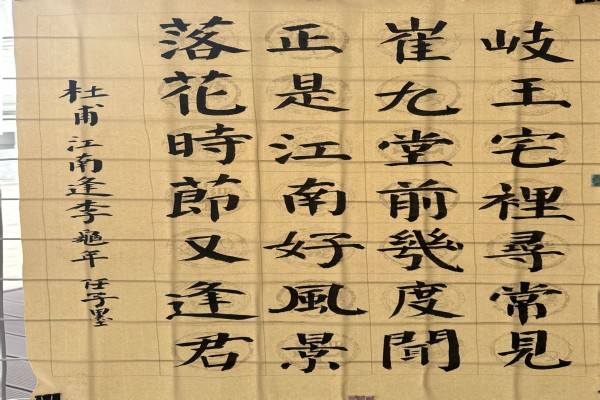 岐王宅裡尋常見
崔九堂前幾度聞
正是江南好風景
落花時節又逢君
杜甫江南逢李龜年任子墨